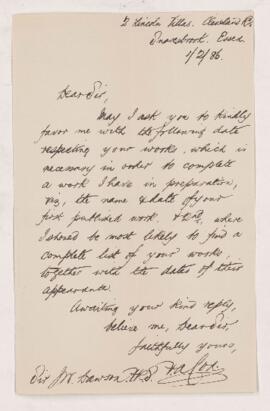 2 Lincoln Villas. Cleveland Rd.
Snaresbrook. Essex.
1/2/86.
Dear Sir,
May I ask you to kindly
favor me with the following data
respecting your works, which is
necessary in order to complete
a work I have in preparation,
viz, the name & date of your
first published work, where
I should be most likely to find a
complete list of your works,
together with the dates of their
appearance.
Awaiting your kind reply,
believe me, Dear Sir,
faithfully yours,
Sir J.W. Dawson.